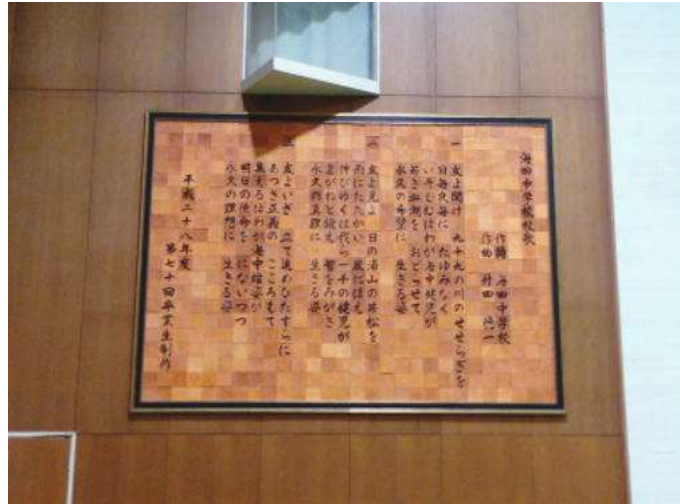 海田中学校校歌
作詞 海田中学校
作曲 田 一
一 友よ聞け 九十九の川のせせらぎを
日毎夜毎に たゆみなく
いそしむはわが海中健児が
若き血潮を おどらせて
永久の希望に 生きる姿
二 友よ見よ 日の浦山の若松を
雨にたたかい 風にほえ
伸びゆくは我ら一千の健児が
まがねと鍛え 智をみがき
永久の真理に 生きる姿
三 友よいざ 立て進めひたすらに
あつき正義の こころもて
集えるはわれ海中雄姿が
明日の使命を にないつつ
永久の理想に 生きる姿
平成二十八年度
第七十回卒業生制作